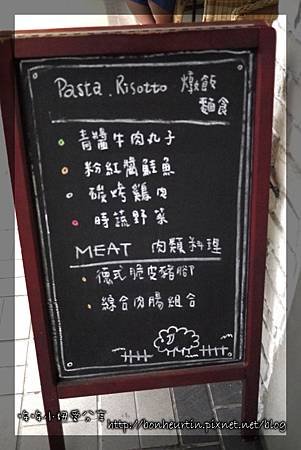 Pasta . Risotto 燉飯
麵食
青醬牛肉丸子
粉紅醬鮭魚
碳烤雞肉
時蔬野菜
MEAT 肉類料理
德式脆皮豬腳
綜合肉腸組合
小妞愛分享
http://bonheurtin.pixnet.net/blog